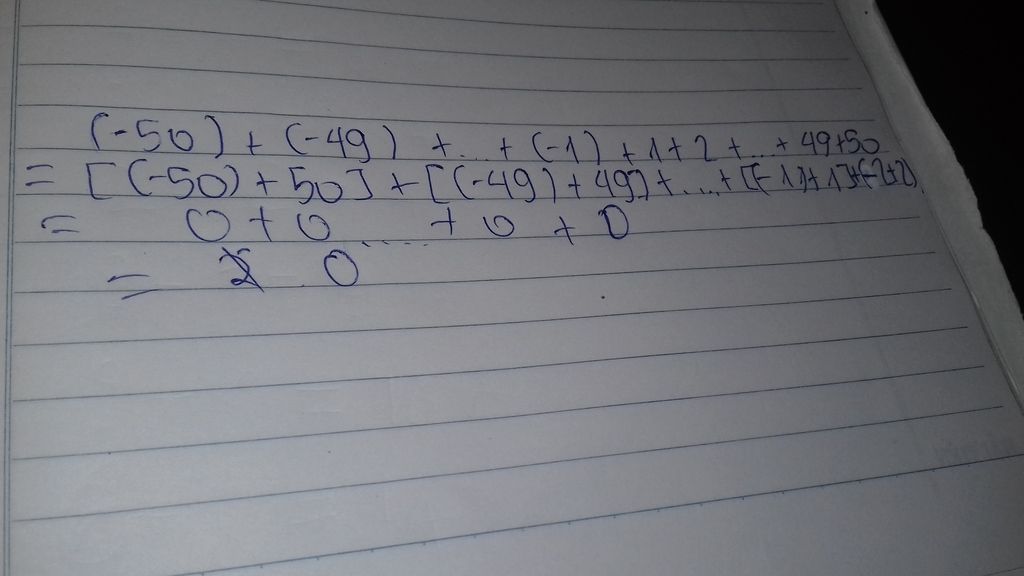 (-50) + (-49) + ... + (-1) + 1 + 2 + ... + 49+50
= [(-50) + 50] + [(-49) + 49] + .... + [(-1)+1]+(-2+2)
= 0 + 0 ..... + 0 + 0
= 0